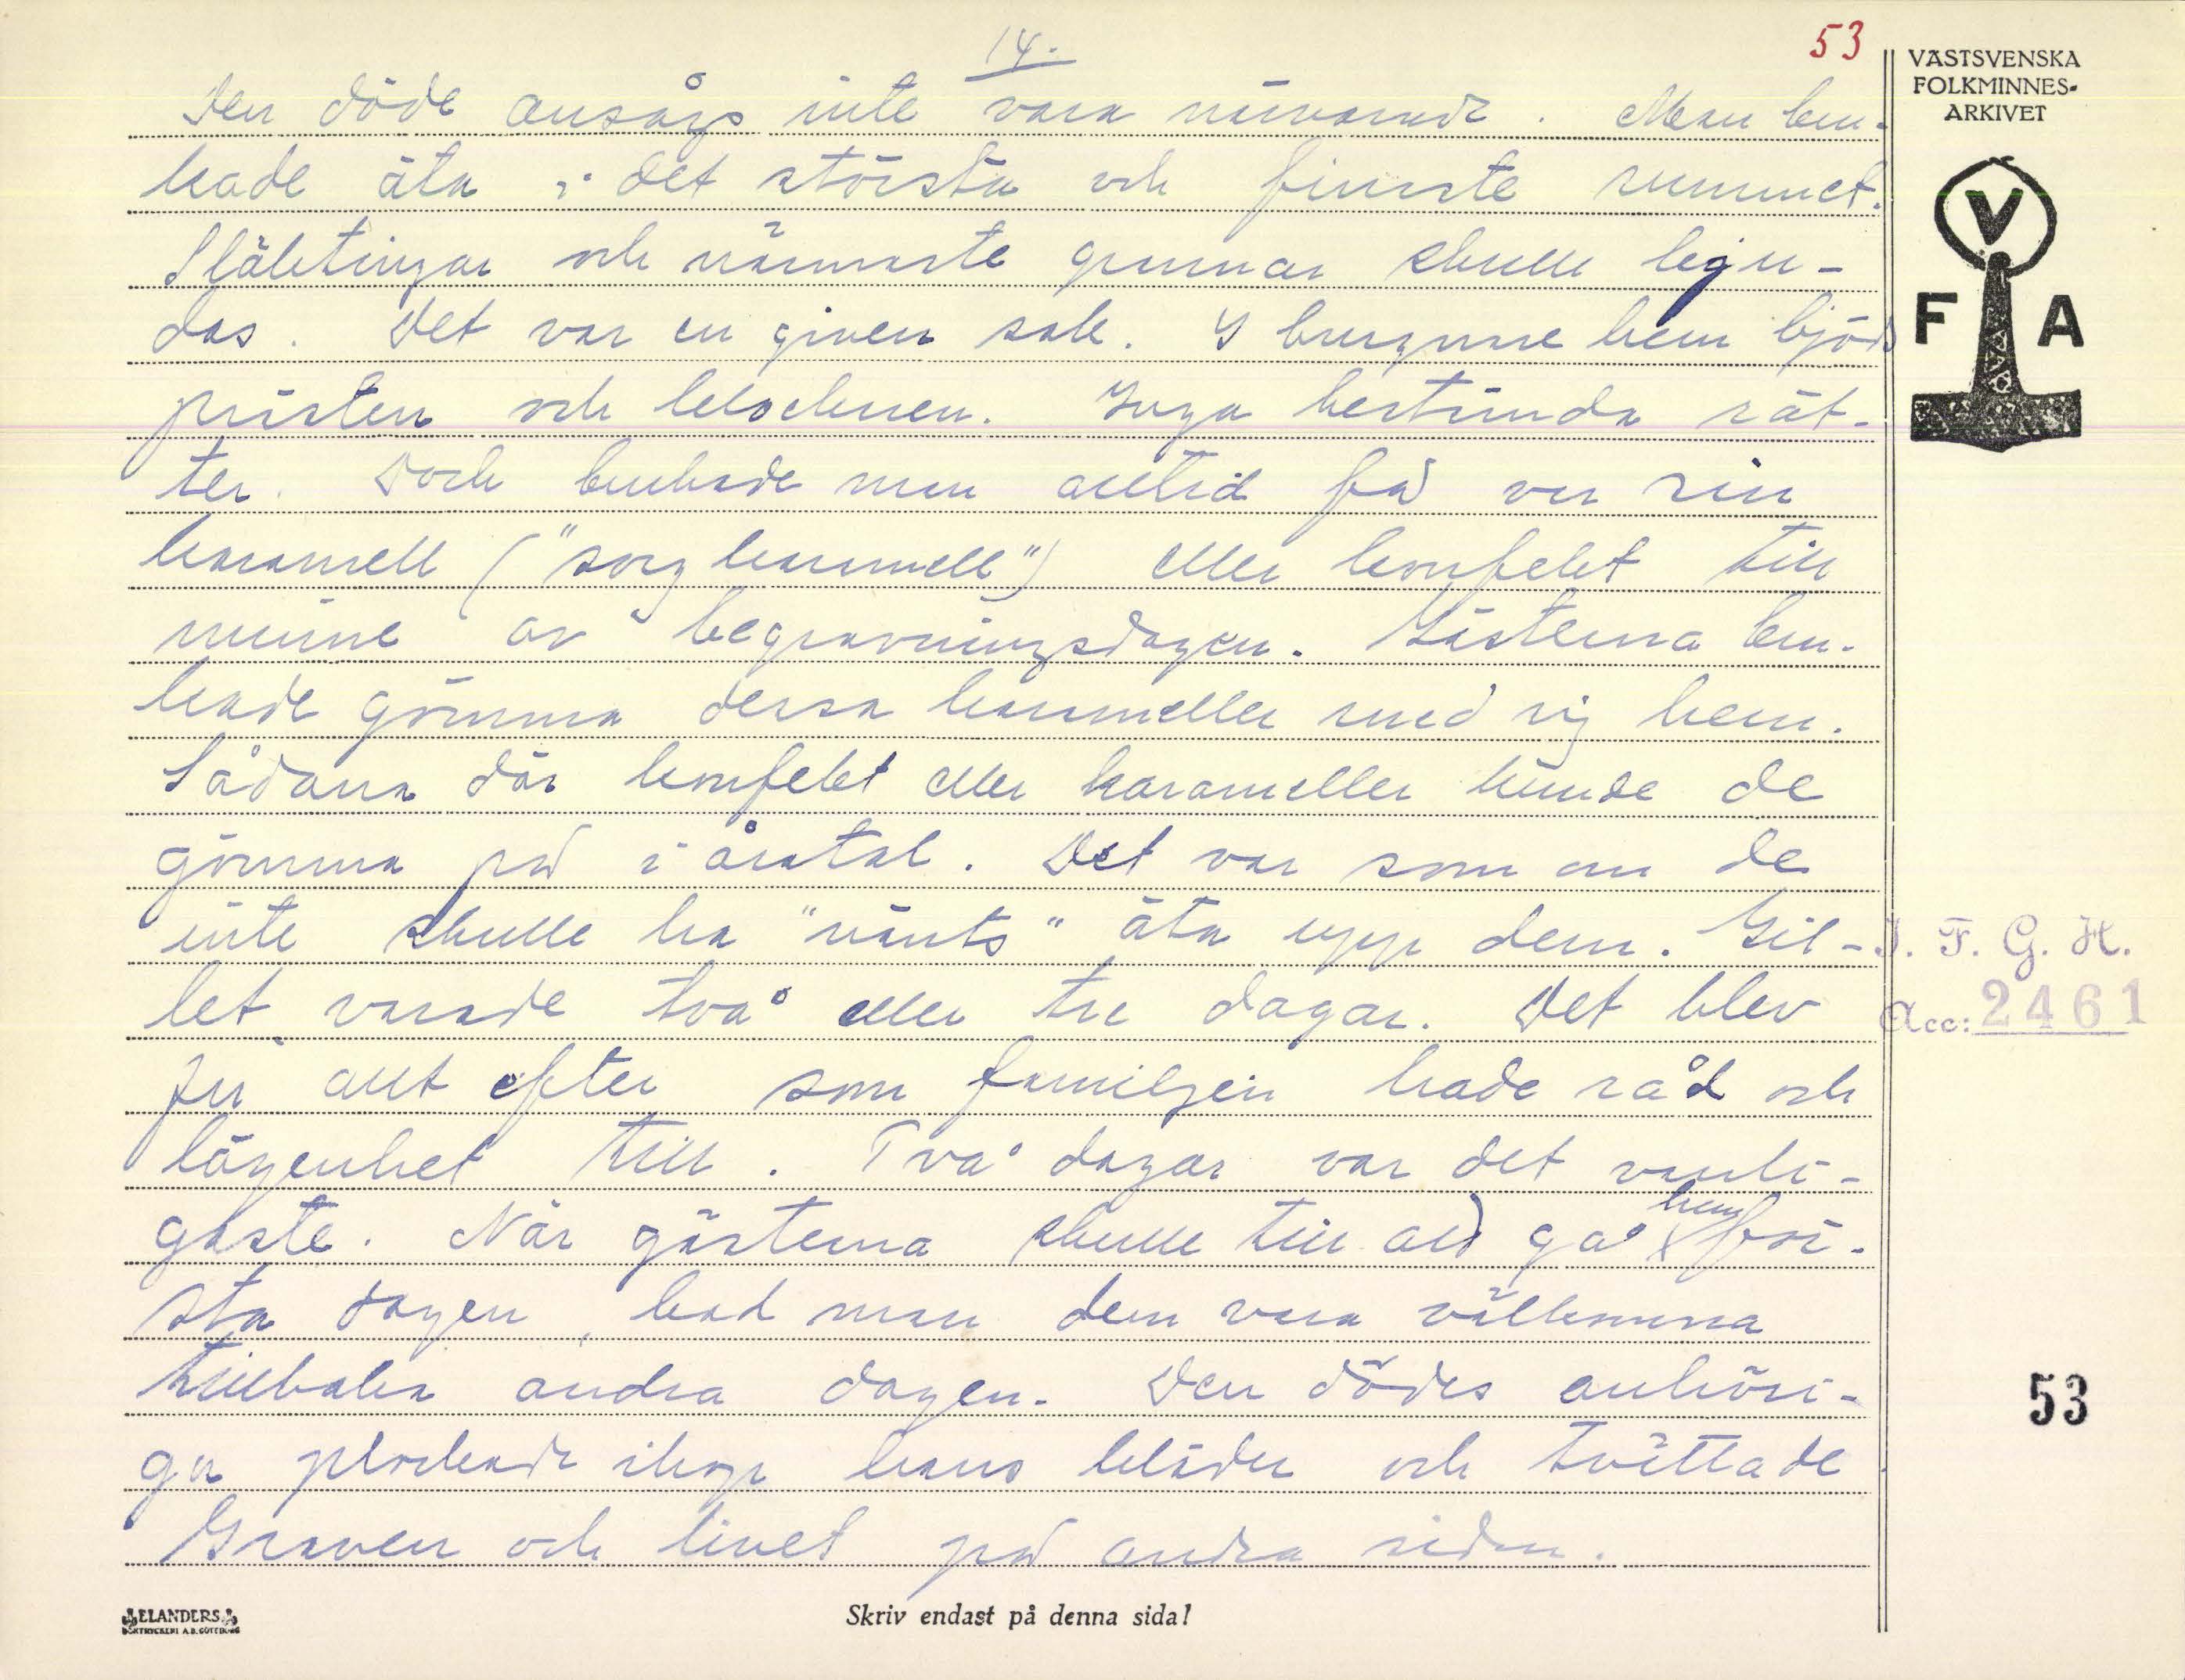 14.
53
VÄSTSVENSKA
FOLKMINNES-
ARKIVET
V
F A
Den döde ansågs inte vara närvarande. Man bru-
kade äta i det största och finaste rummet.
Släktingar och närmaste grannar skulle bju-
das. Det var en given sak. I burgnare hem bjöds
prästen och klockaren. Inga bestämda rät-
ter. Dock brukade man alltid få var sin
karamell ("sorgkaramell") eller konfekt till
minne av begravningsdagen. Gästerna bru-
kade gömma dessa karameller med sig hem.
Sådana där konfekt eller karameller kunde de
gömma på i åratal. Det var som om de
inte skulle ha "nänts" äta upp dem. Gil-
let varade två eller tre dagar. Det blev
ju allt efter som familjen hade råd och
lägenhet till. Två dagar var det vanli-
gaste. När gästerna skulle till att gå hem för-
sta dagen, bad man dem vara välkomna
tillbaka andra dagen. Den dödes anhöri-
ga plockade ihop hans kläder och tvättade
Graven och livet på andra sidan.
I. F. G. H.
Acc: 2461
53
ELANDERS
BOKTRYCKERI A.B. GÖTEBORG
Skriv endast på denna sida!